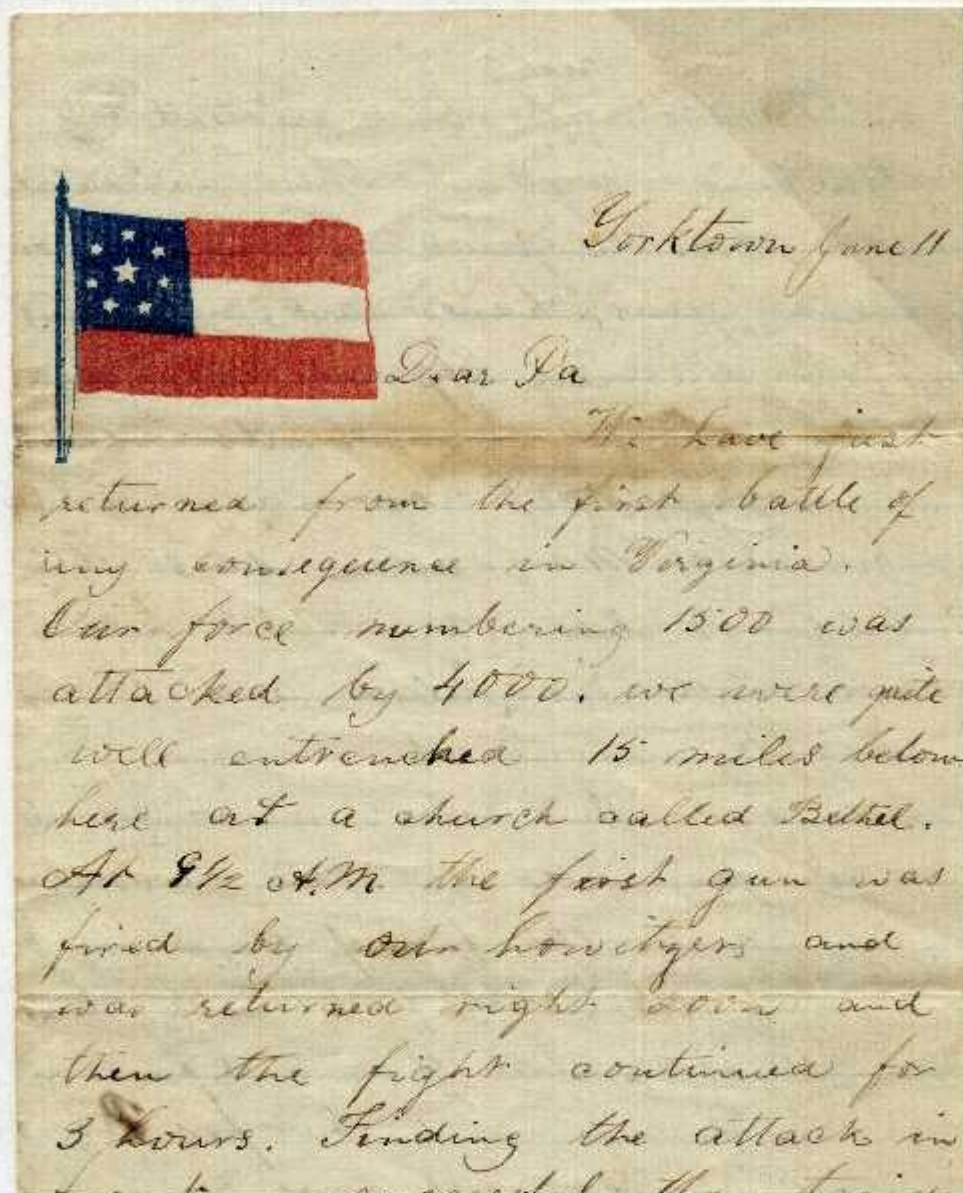 Yorktown June 11
Dear Pa
We have just
returned from the first battle of
any consequence in Virginia.
Our force numbering 1500 was
attacked by 4000. we were quite
well entrenched 15 miles below
here at a church called Bethel.
At 9 1/2 A.M. the first gun was
fired by our howitzers and
was returned right soon and
then the fight continued for
3 hours. Finding the attack in